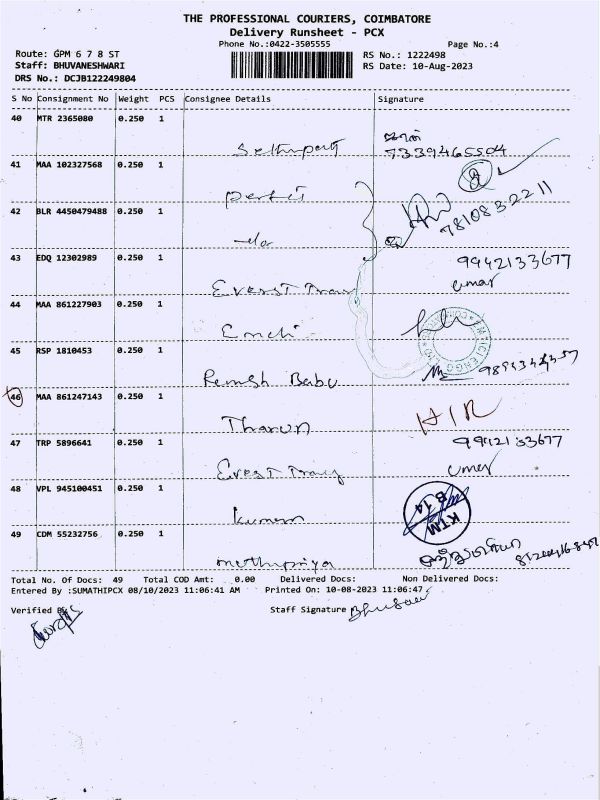 THE PROFESSIONAL COURIERS, COIMBATORE
Delivery Runsheet - PCX
Phone No.:0422-3505555 Page No.:4
Route: GPM 6 7 8 ST RS No.: 1222498
Staff: BHUVANESHWARI RS Date: 10-Aug-2023
DRS No.: DCJB122249804
S No Consignment No Weight PCS Consignee Details Signature
40 MTR 2365080 0.250 1
7339465504
41 MAA 102327568 0.250 1
Perfect
42 BLR 4450479488 0.250 1 7810832211
do
43 EDQ 12302989 0.250 1 9942133677
Everst Umar
44 MAA 861227903 0.250 1
Emchi
45 RSP 1810453 0.250 1
Ramesh Babu
46 MAA 861247143 0.250 1 HIR
Tharun
47 TRP 5896641 0.250 1 9942133677
Everst Umar
48 VPL 945100451 0.250 1 KTM B 14
Kumaran
49 CDM 55232756 0.250 1
Muthupriya
Total No. Of Docs: 49 Total COD Amt: 0.00 Delivered Docs: Non Delivered Docs:
Entered By :SUMATHIPCX 08/10/2023 11:06:41 AM Printed On: 10-08-2023 11:06:47
Verified By Staff Signature